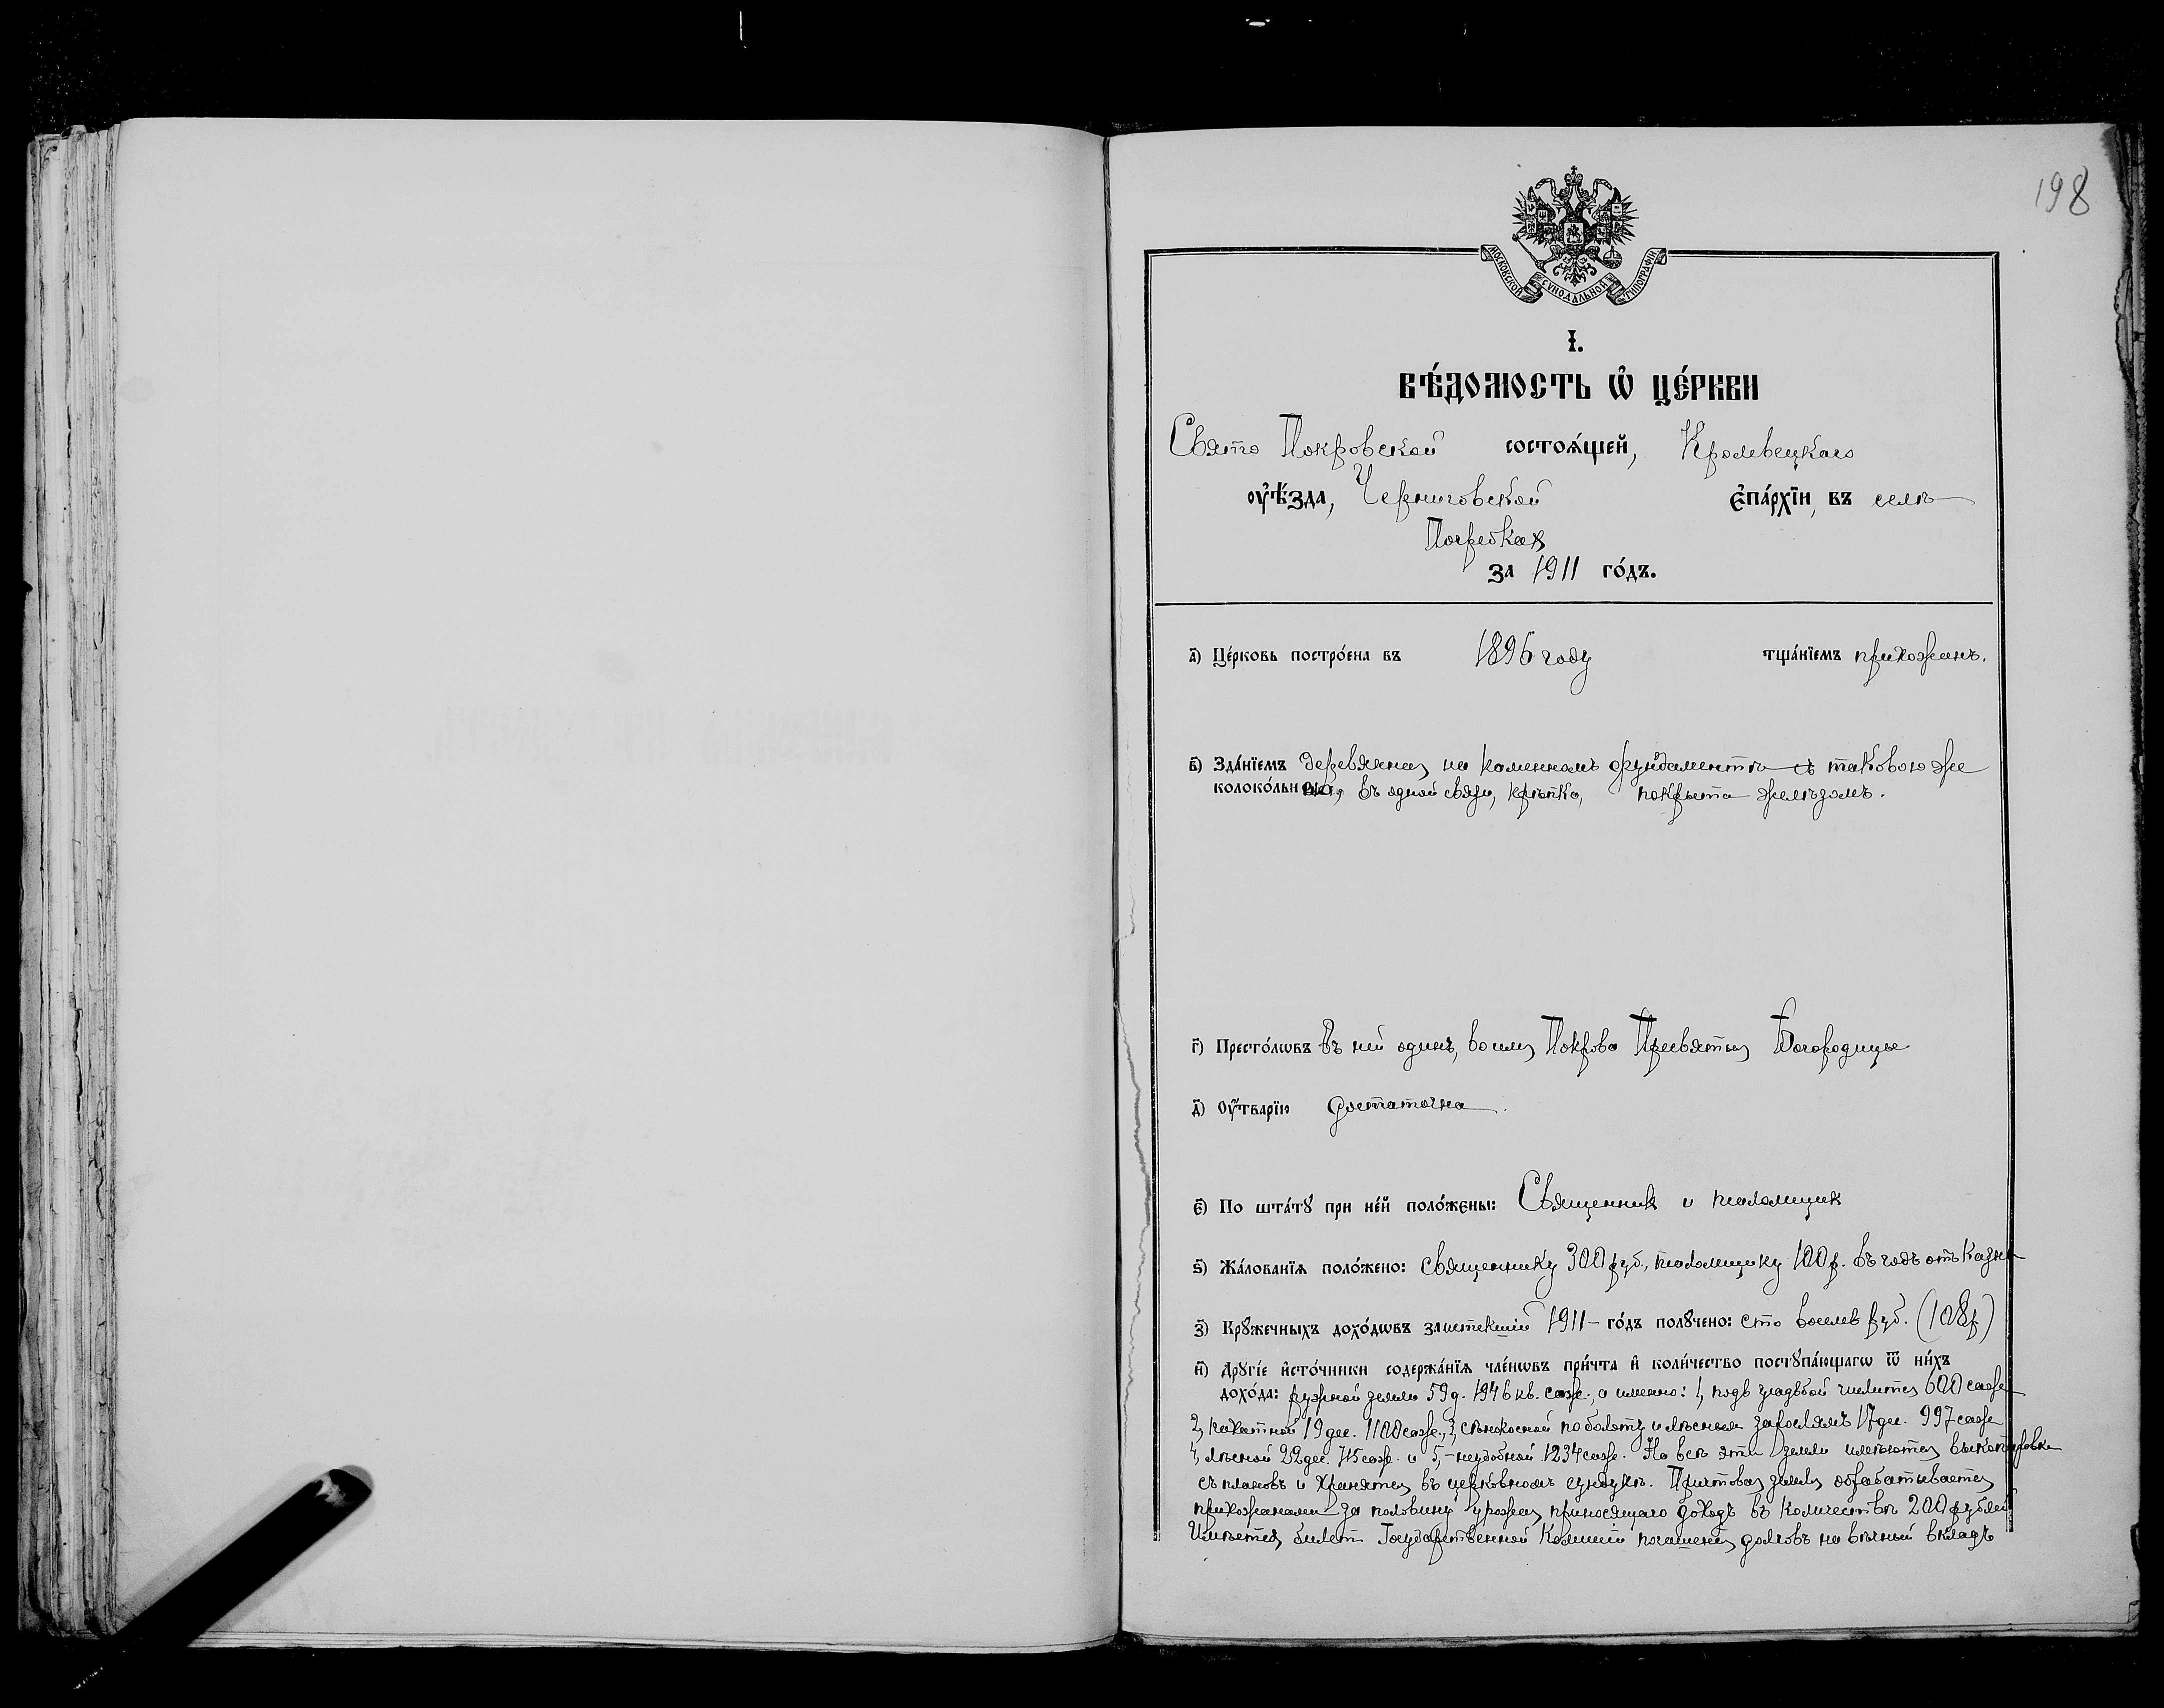 198
МОСКОВСКОЙ СѴНОДАЛЬНОЙ ТИПОГРАФІИ
І.
ВѢ́ДОМОСТЬ Ѡ҆ ЦЕ́РКВИ
Свято Покровской состоѧ́щей, Кролевецкаго
оу҆ѣ́зда, Черниговской є҆па́рхїи, въ селѣ
Погребках
за 1911 го́дъ.
а҃) Це́рковь постро́ена въ 1896 году тща́нїемъ прихожанъ.
в҃) Зда́нїемъ деревянная, на каменномъ фундаментѣ съ таковою же
колоко́льнею, въ одной связи, крѣпка, покрыта желѣзомъ.
г҃) Престо́лѡвъ въ ней одинъ, во имя Покрова Пресвятыя Богородицы
д҃) Оу҆́тварїю достаточна.
є҃) По шта́тꙋ при не́й поло́жены: Священник и псаломщик
ѕ҃) Жа́лованїѧ поло́жено: священнику 300 руб., псаломщику 100 р. въ годъ отъ казны
з҃) Крꙋ́жечныхъ дохо́дѡвъ за истекшій 1911 – го́дъ полꙋ́чено: сто восемь руб. (108 р)
и҃) Дрꙋгі́е и҆сто́чники содержа́нїѧ чле́нѡвъ при́чта и҆ коли́чество постꙋпа́ющагѡ ѿ ни́хъ
дохо́да: ружной земли 59 д. 1946 кв. саж., а именно: 1, подъ усадьбой числится 600 саж.
2, пахатной 19 дес. 1100 саж., 3, сѣнокосной по болоту и лѣснымъ зарослямъ 17 дес. 997 саж
4, лѣсной 22 дес. 715 саж. и 5,– неудобной 1234 саж. На всѣ эти земли имѣются выкопировки
съ плановъ и хранятся въ церковномъ сундукѣ. Причтовая земля обрабатывается
прихожанами за половину урожая, приносящаго доходъ въ количествѣ 200 рублей
Имѣется билетъ Государственной Комисіи погашенія долговъ на вѣчный вкладъ